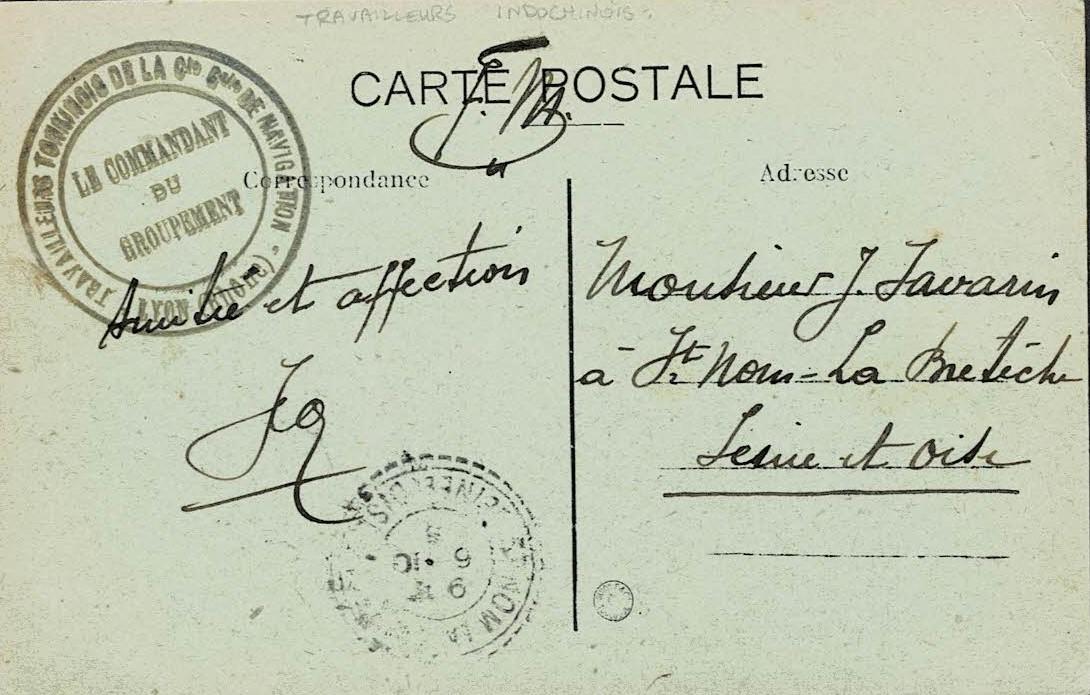 TRAVAILLEURS INDOCHINOIS.
CARTE POSTALE
F. M.
TRAVAILLEURS TONKINOIS DE LA Cie Gale DE NAVIGATION - LYON (RHONE)
LE COMMANDANT
DU
GROUPEMENT
Correspondance
Adresse
Amitié et affection
Monsieur J. Savarin
à St Nom-La Bretèche
Seine et Oise
ST NOM LA
SEINE-ET-OISE